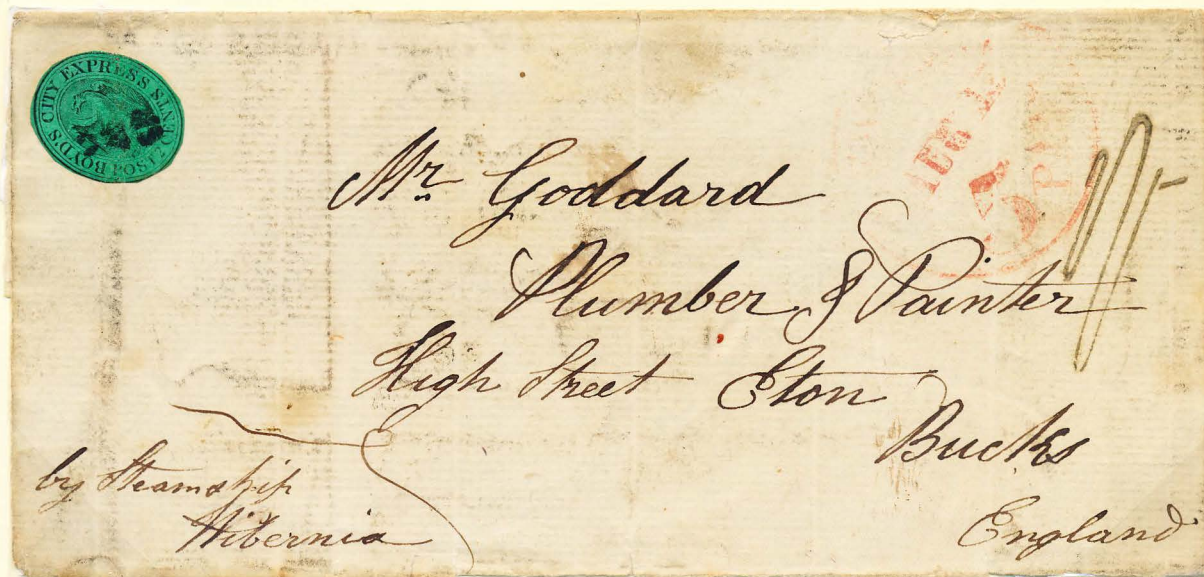 BOYD'S CITY EXPRESS POST 2 CENTS
AUG
5
Mr Goddard
Plumber & Painter
High Street Eton
Bucks
England
by Steamship
Hibernia